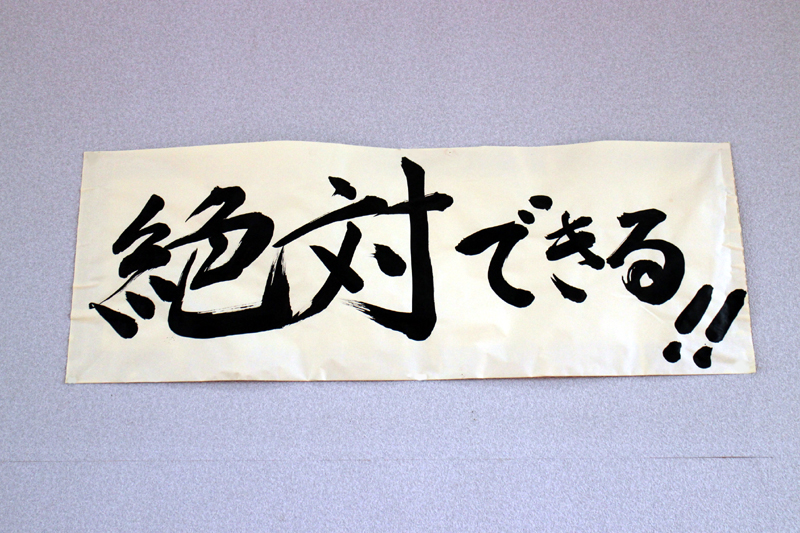 絶対できる!!